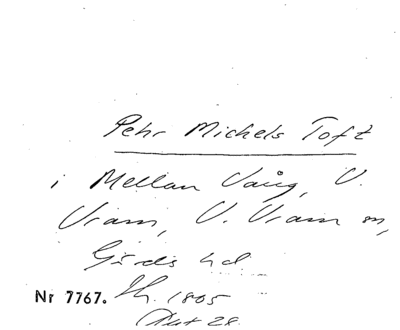 Pehr Michels Toft
i Mellan Vång, V.
Vram, V. Vram sn,
Gärds hd
Nr 7767. 1805
28.